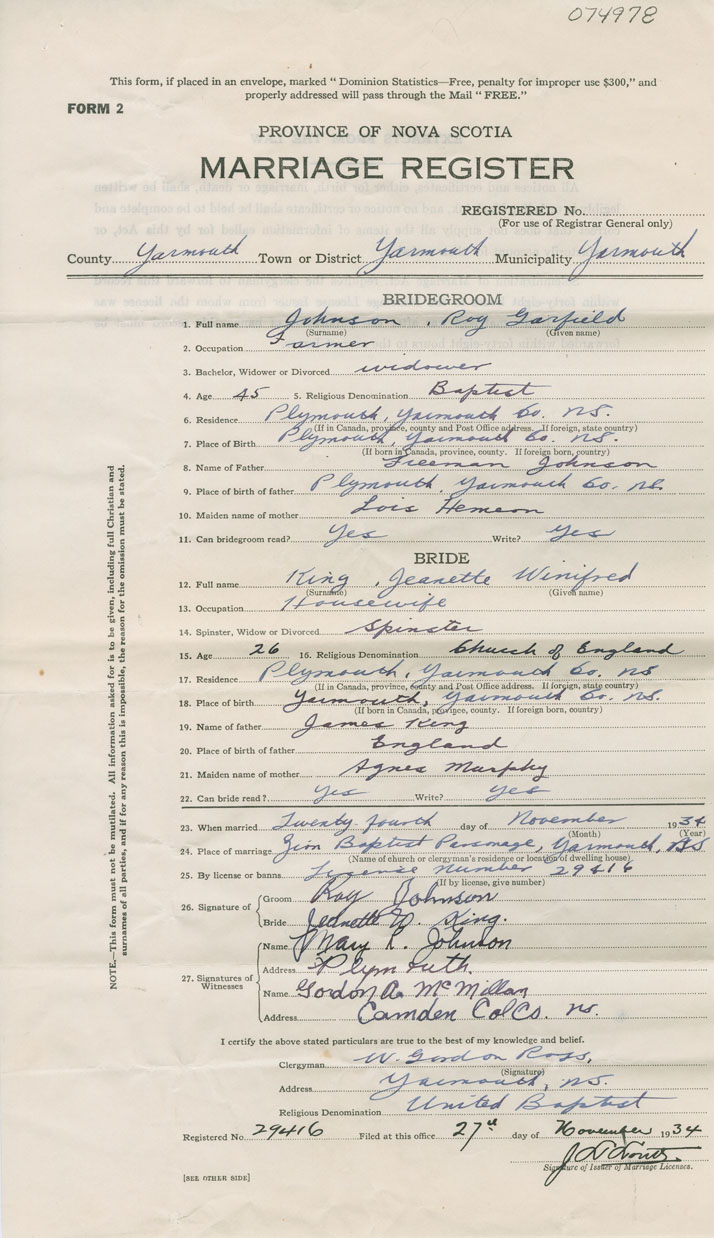 074978
This form, if placed in an envelope, marked " Dominion Statistics—Free, penalty for improper use $300," and
properly addressed will pass through the Mail " FREE."
FORM 2
PROVINCE OF NOVA SCOTIA
MARRIAGE REGISTER
REGISTERED No.
(For use of Registrar General only)
County Yarmouth Town or District Yarmouth Municipality Yarmouth
BRIDEGROOM
1. Full name Johnson, Roy Garfield
(Surname) (Given name)
2. Occupation Farmer
3. Bachelor, Widower or Divorced widower
4. Age 45 5. Religious Denomination Baptist
6. Residence Plymouth, Yarmouth Co. N.S.
(If in Canada, province, county and Post Office address. If foreign, state country)
7. Place of Birth Plymouth, Yarmouth Co. N.S.
(If born in Canada, province, county. If foreign born, country)
8. Name of Father Freeman Johnson
9. Place of birth of father Plymouth, Yarmouth Co. N.S.
10. Maiden name of mother Lois Hemeon
11. Can bridegroom read? Yes Write? Yes
BRIDE
12. Full name King, Jeanette Winifred
(Surname) (Given name)
13. Occupation Housewife
14. Spinster, Widow or Divorced Spinster
15. Age 26 16. Religious Denomination Church of England
17. Residence Plymouth, Yarmouth Co. N.S
(If in Canada, province, county and Post Office address. If foreign, state country)
18. Place of birth Yarmouth, Yarmouth Co. N.S.
(If born in Canada, province, county. If foreign born, country)
19. Name of father James King
20. Place of birth of father England
21. Maiden name of mother Agnes Murphy
22. Can bride read? Yes Write? Yes
23. When married Twenty-fourth day of November 1934
(Month) (Year)
24. Place of marriage Zion Baptist Parsonage, Yarmouth, N.S
(Name of church or clergyman's residence or location of dwelling house)
25. By license or banns License Number 29416
(If by license, give number)
26. Signature of
Groom Roy Johnson
Bride Jeanette W. King.
27. Signatures of Witnesses
Name Mary R. Johnson
Address Plymouth.
Name Gordon A. McMillan
Address Camden Col Co. N.S.
I certify the above stated particulars are true to the best of my knowledge and belief.
Clergyman W. Gordon Ross,
(Signature)
Address Yarmouth, N.S.
Religious Denomination United Baptist
Registered No. 29416 Filed at this office 27th day of November 1934
Signature of Issuer of Marriage Licenses.
[SEE OTHER SIDE]
NOTE.—This form must not be mutilated. All information asked for is to be given, including full Christian and
surnames of all parties, and if for any reason this is impossible, the reason for the omission must be stated.